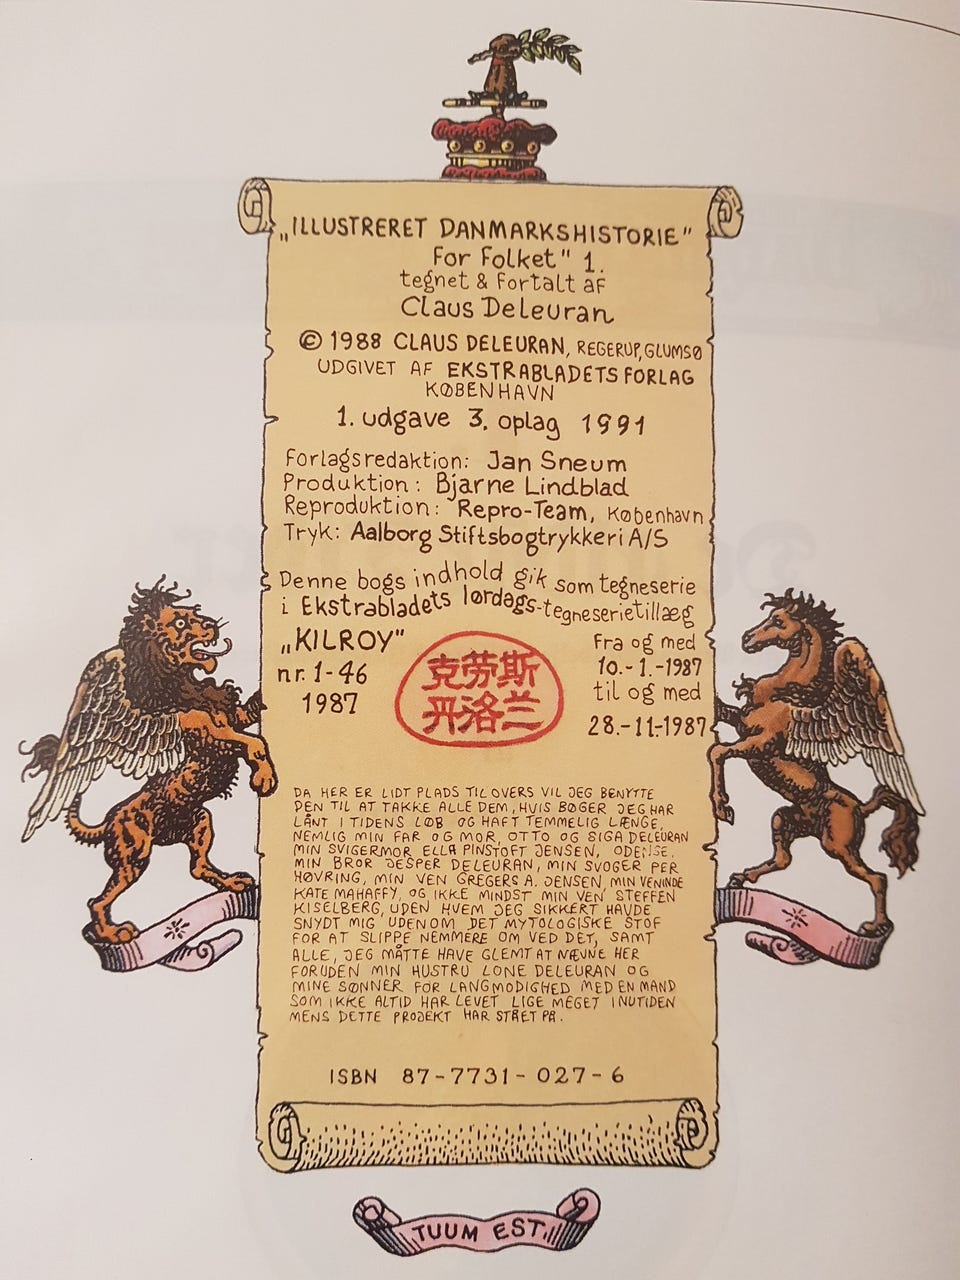 „ILLUSTRERET DANMARKSHISTORIE"
For Folket" 1.
tegnet & fortalt af
Claus Deleuran
© 1988 CLAUS DELEURAN, REGERUP, GLUMSØ
UDGIVET AF EKSTRABLADETS FORLAG
KØBENHAVN
1. udgave 3. oplag 1991
Forlagsredaktion: Jan Sneum
Produktion: Bjarne Lindblad
Reproduktion: Repro-Team, København
Tryk: Aalborg Stiftsbogtrykkeri A/S
Denne bogs indhold gik som tegneserie
i Ekstrabladets lørdags-tegneserietillæg
„KILROY"
nr. 1-46
1987
克劳斯
丹洛兰
Fra og med
10.-1.-1987
til og med
28.-11.-1987
DA HER ER LIDT PLADS TIL OVERS VIL JEG BENYTTE
DEN TIL AT TAKKE ALLE DEM, HVIS BØGER JEG HAR
LÅNT I TIDENS LØB OG HAFT TEMMELIG LÆNGE,
NEMLIG MIN FAR OG MOR, OTTO OG SIGA DELEURAN
MIN SVIGERMOR ELLA PINSTOFT JENSEN, ODENSE.
MIN BROR JESPER DELEURAN, MIN SVOGER PER
HØVRING, MIN VEN GREGERS A. JENSEN, MIN VENINDE
KATE MAHAFFY, OG IKKE MINDST MIN VEN STEFFEN
KISELBERG, UDEN HVEM JEG SIKKERT HAVDE
SNYDT MIG UDENOM DET MYTOLOGISKE STOF
FOR AT SLIPPE NEMMERE OM VED DET, SAMT
ALLE, JEG MÅTTE HAVE GLEMT AT NÆVNE HER
FORUDEN MIN HUSTRU LONE DELEURAN OG
MINE SØNNER FOR LANGMODIGHED MED EN MAND
SOM IKKE ALTID HAR LEVET LIGE MEGET I NUTIDEN
MENS DETTE PROJEKT HAR STÅET PÅ.
ISBN 87-7731-027-6
TUUM EST